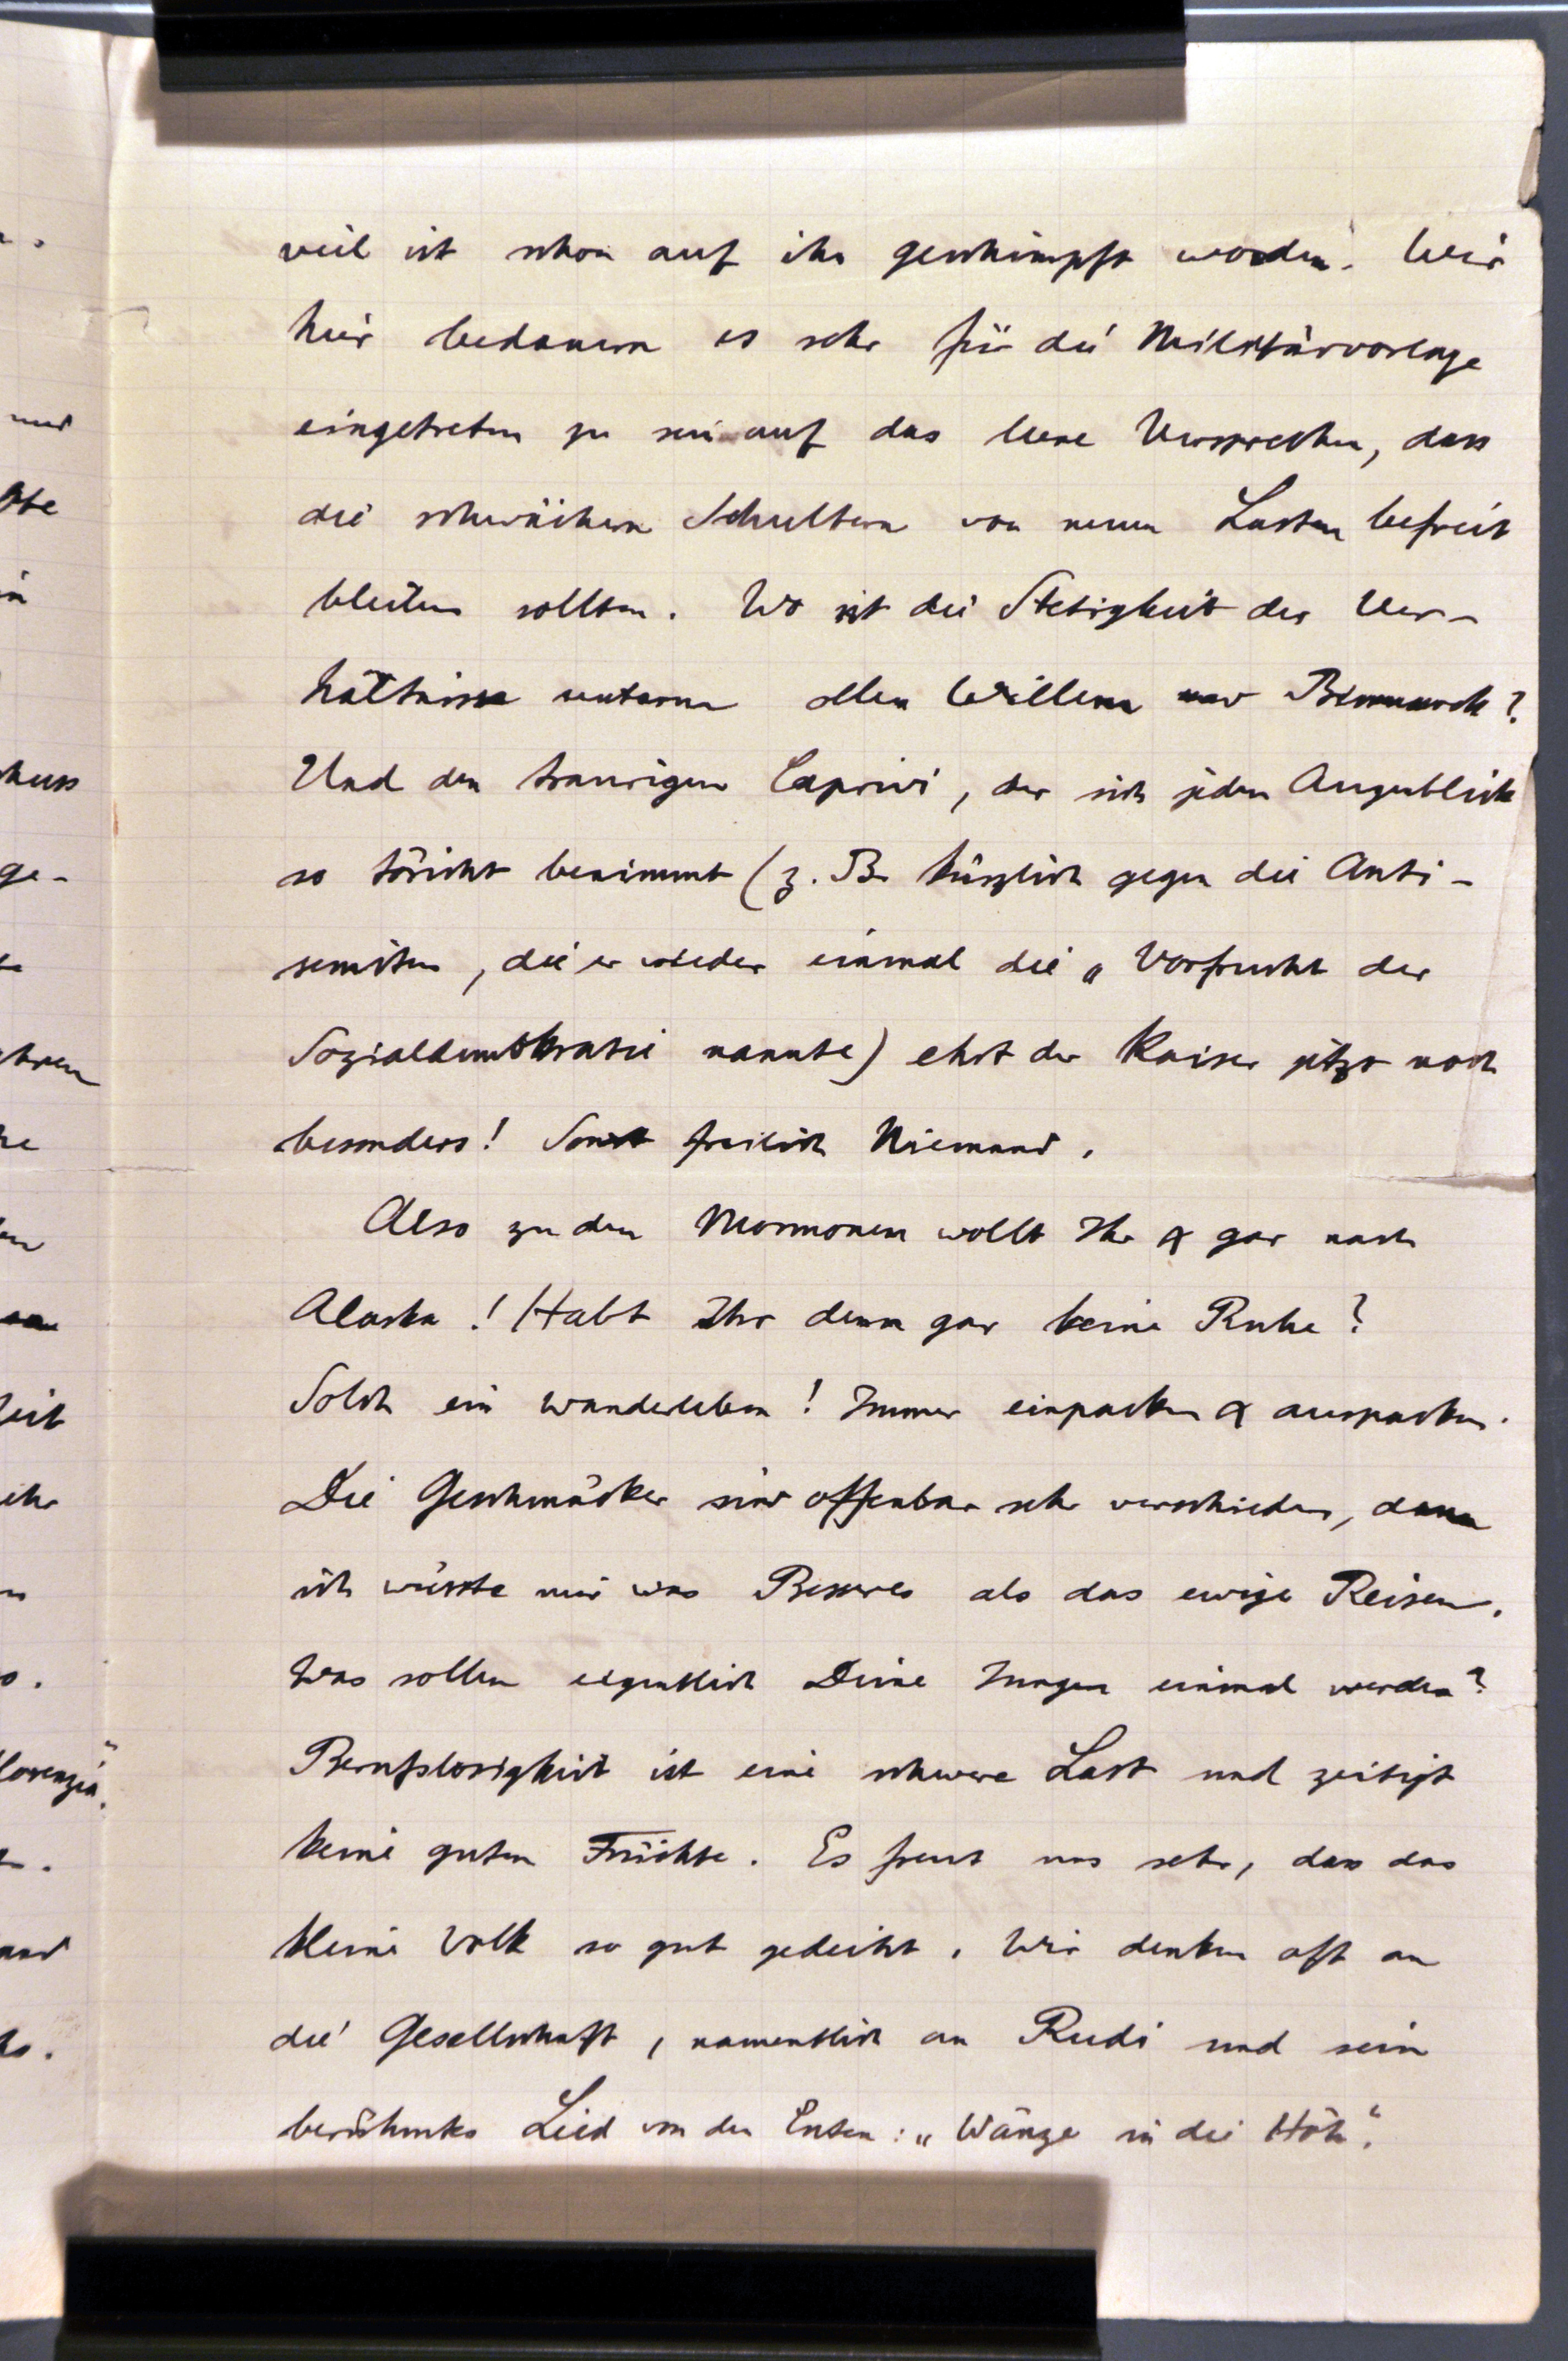 viel ist schon auf ihn geschimpft worden. Wir
hier bedauern es sehr für die Militärvorlage
eingetreten zu sein auf das leere Versprechen, dass
die schwächern Schultern von neuen Lasten befreit
bleiben sollten. Wo ist die Stetigkeit der Ver-
hältnisse unterm ollen Willem und Bismarck?
Und den traurigen Caprivi, der sich jeden Augenblick
so töricht benimmt (z. B. kürzlich gegen die Anti-
semiten, die er wieder einmal die „Vorfrucht der
Sozialdemokratie nannte) ehrt der Kaiser jetzt noch
besonders! Sonst freilich Niemand.
Also zu den Mormonen wollt Ihr & gar nach
Alaska! Habt Ihr denn gar keine Ruhe?
Solch ein Wanderleben! Immer einpacken & auspacken.
Die Geschmäcker sind offenbar sehr verschieden, denn
ich wüsste mir was Besseres als das ewige Reisen.
Was sollen eigentlich Deine Jungen einmal werden?
Berufslosigkeit ist eine schwere Last und zeitigt
keine guten Früchte. Es freut uns sehr, dass das
kleine Volk so gut gedeiht. Wir denken oft an
die Gesellschaft, namentlich an Rudi und sein
berühmtes Lied von den Enten: „Wänze in die Höh“.